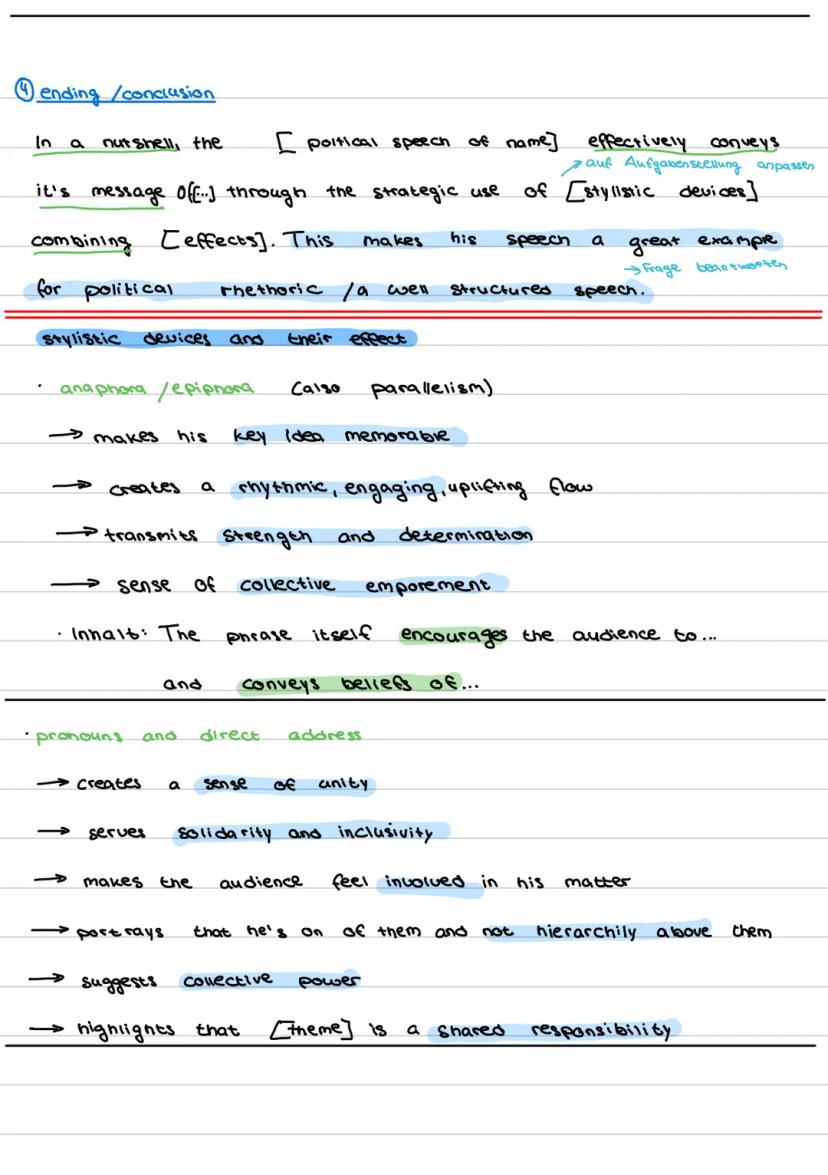 ④ ending /conclusion
In a nutshell, the [ poltical speech of name] effectively conveys
↗ auf Aufgabenstellung anpassen
it's message of[...] through the strategic use of [stylistic devices]
combining [effects]. This makes his speech a great example
→ Frage beantworten
for political rhethoric / a well structured speech.
stylistic devices and their effect
· anaphora /epiphora (also parallelism)
→ makes his key idea memorable
→ creates a rhythmic, engaging, uplifting flow
→ transmits strength and determination
→ sense of collective emporement
· Inhalt: The phrase itself encourages the audience to...
and conveys beliefs of...
· pronouns and direct address
→ creates a sense of unity
→ serves solidarity and inclusivity
→ makes the audience feel involved in his matter
→ portrays that he's on of them and not hierarchily above them
→ suggests collective power
→ highlights that [theme] is a shared responsibility